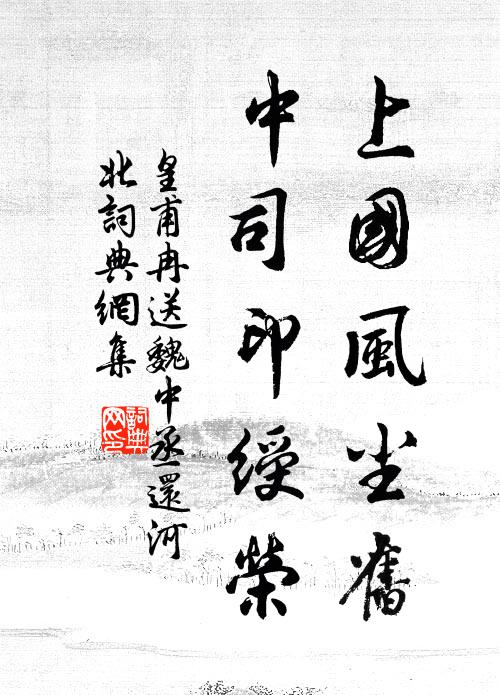 上國風尘舊
中司印綬榮
皇甫冉送魏中丞還河
北詞典網集
詞典网印